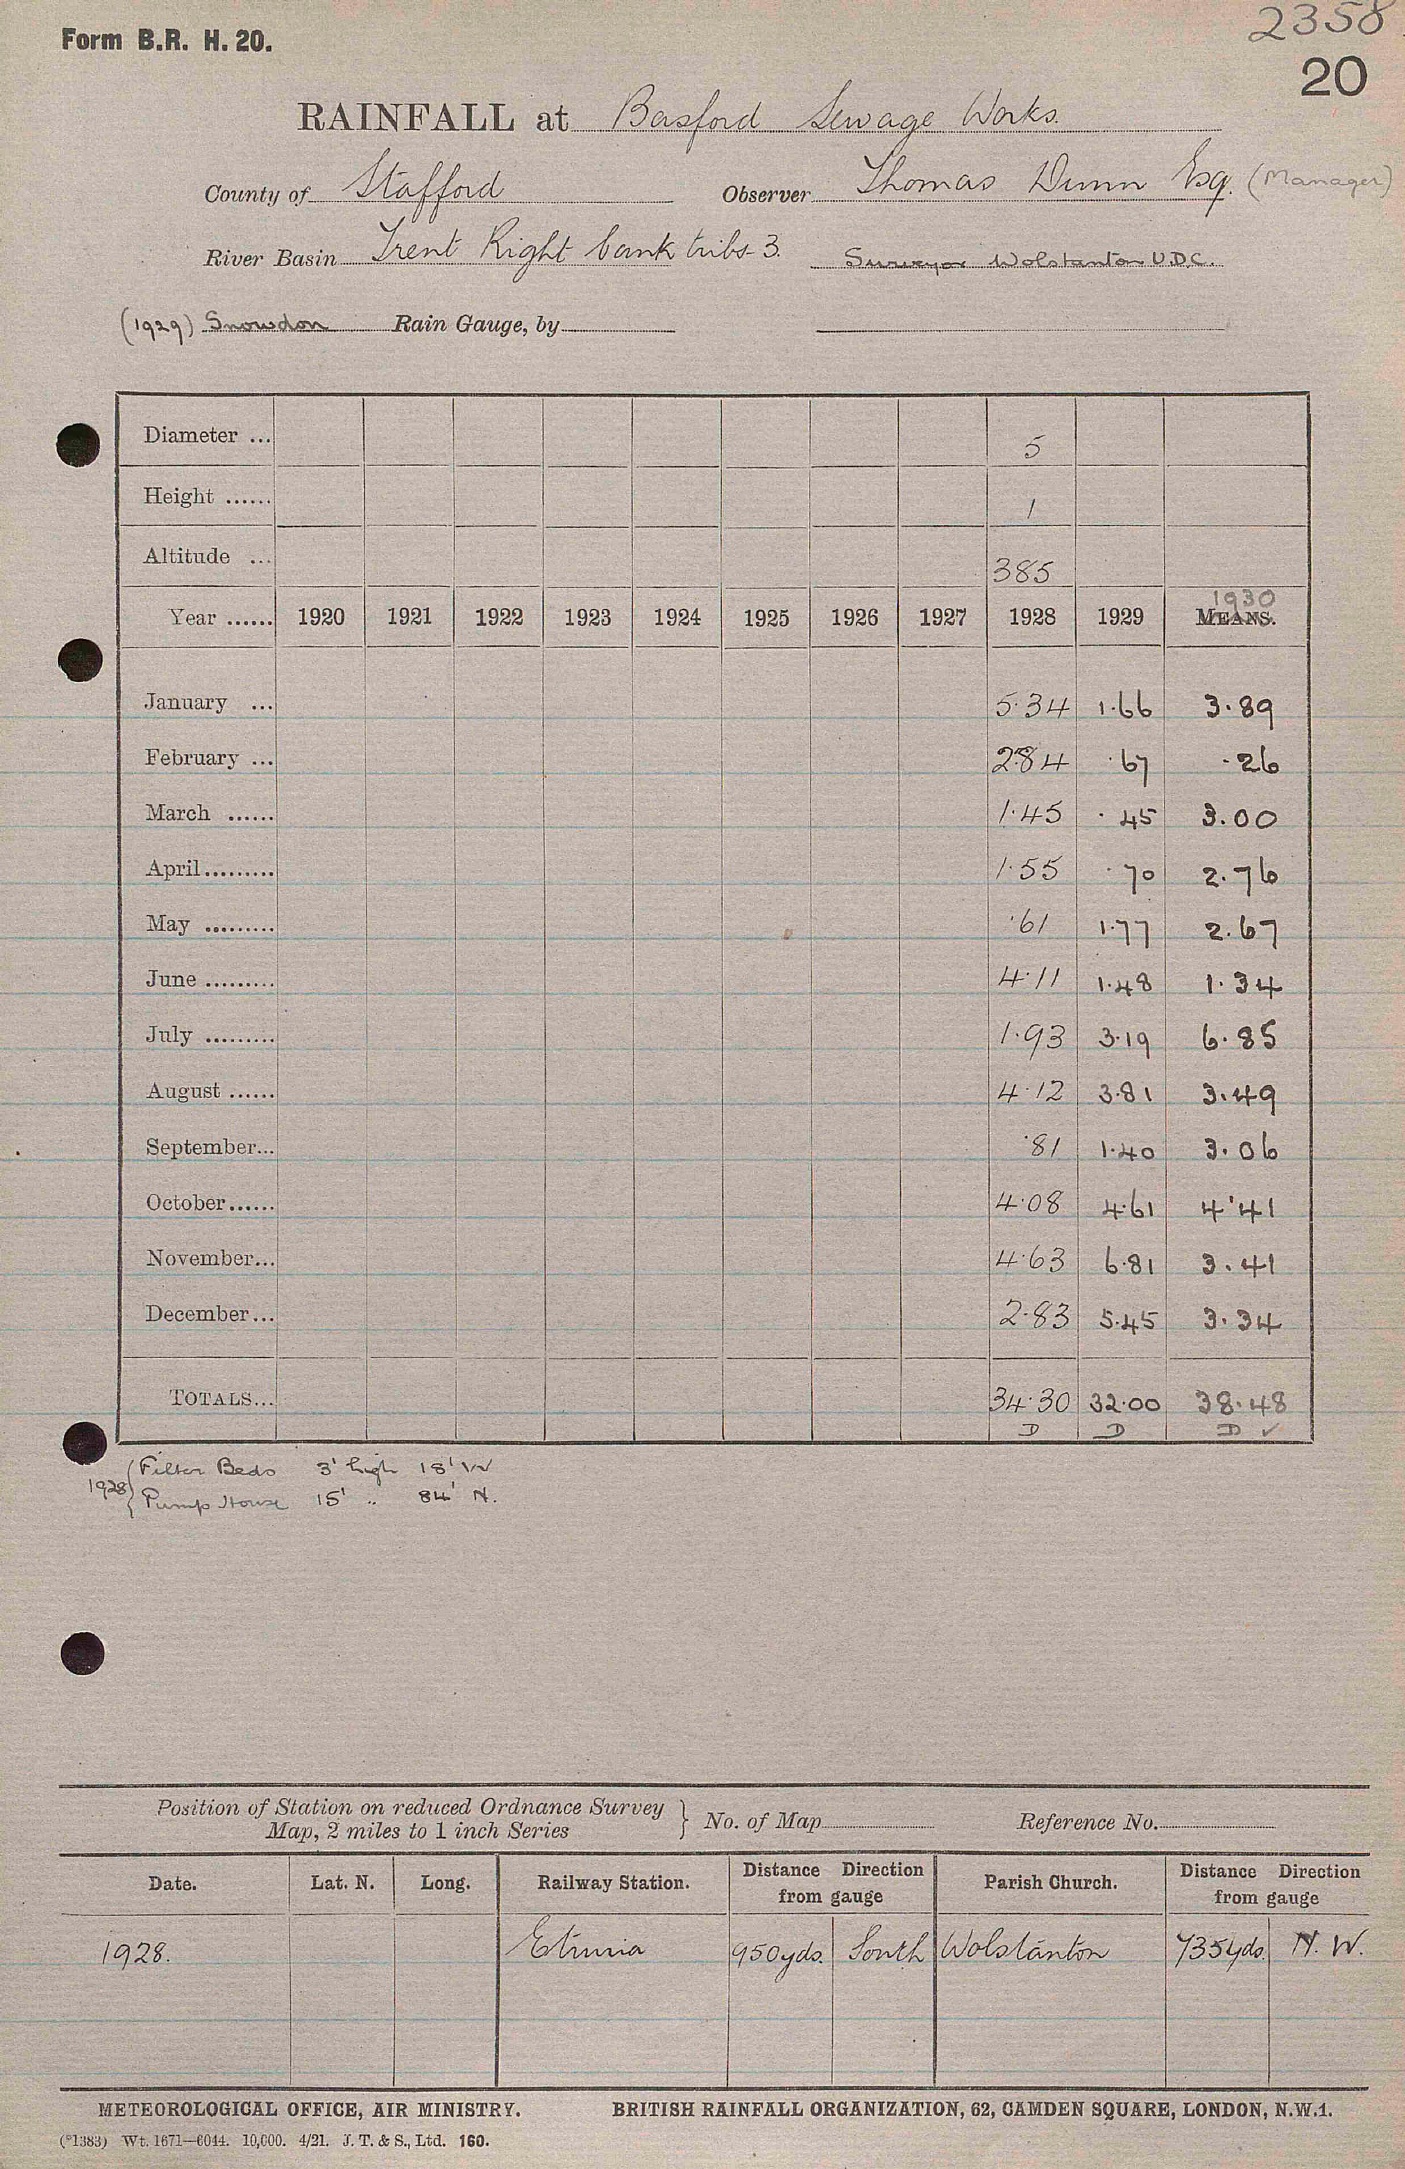 2358
Form B.R. H. 20.
20
RAINFALL at Basford Sewage Works.
County of Stafford Observer Thomas Dunn Esq. (Manager)
River Basin Trent Right bank tribs 3. Surveyor Wolstanton U.D.C.
(1929) Snowdon Rain Gauge, by
Diameter ... 5
Height ...... 1
Altitude ... 385
1930
Year ...... 1920 1921 1922 1923 1924 1925 1926 1927 1928 1929 MEANS.
January ... 5·34 1·66 3·89
February ... 2·84 ·67 ·26
March ...... 1·45 ·45 3.00
April......... 1·55 ·70 2.76
May ......... ·61 1·77 2.67
June ......... 4·11 1·48 1.34
July ......... 1·93 3·19 6.85
August ...... 4·12 3·81 3.49
September... ·81 1·40 3.06
October...... 4·08 4·61 4·41
November... 4·63 6·81 3.41
December... 2·83 5·45 3.34
TOTALS... 34·30 32·00 38·48
D D D ✓
1928 { Filter Beds 3' high 18' W
Pump House 15' „ 84' N.
Position of Station on reduced Ordnance Survey
Map, 2 miles to 1 inch Series } No. of Map Reference No.
Date. Lat. N. Long. Railway Station. Distance Direction from gauge Parish Church. Distance Direction from gauge
1928. Etruria 950yds. South Wolstanton 735yds. N. W.
METEOROLOGICAL OFFICE, AIR MINISTRY. BRITISH RAINFALL ORGANIZATION, 62, CAMDEN SQUARE, LONDON, N.W.1.
(*1383) Wt. 1671—6044. 10,000. 4/21. J. T. & S., Ltd. 160.